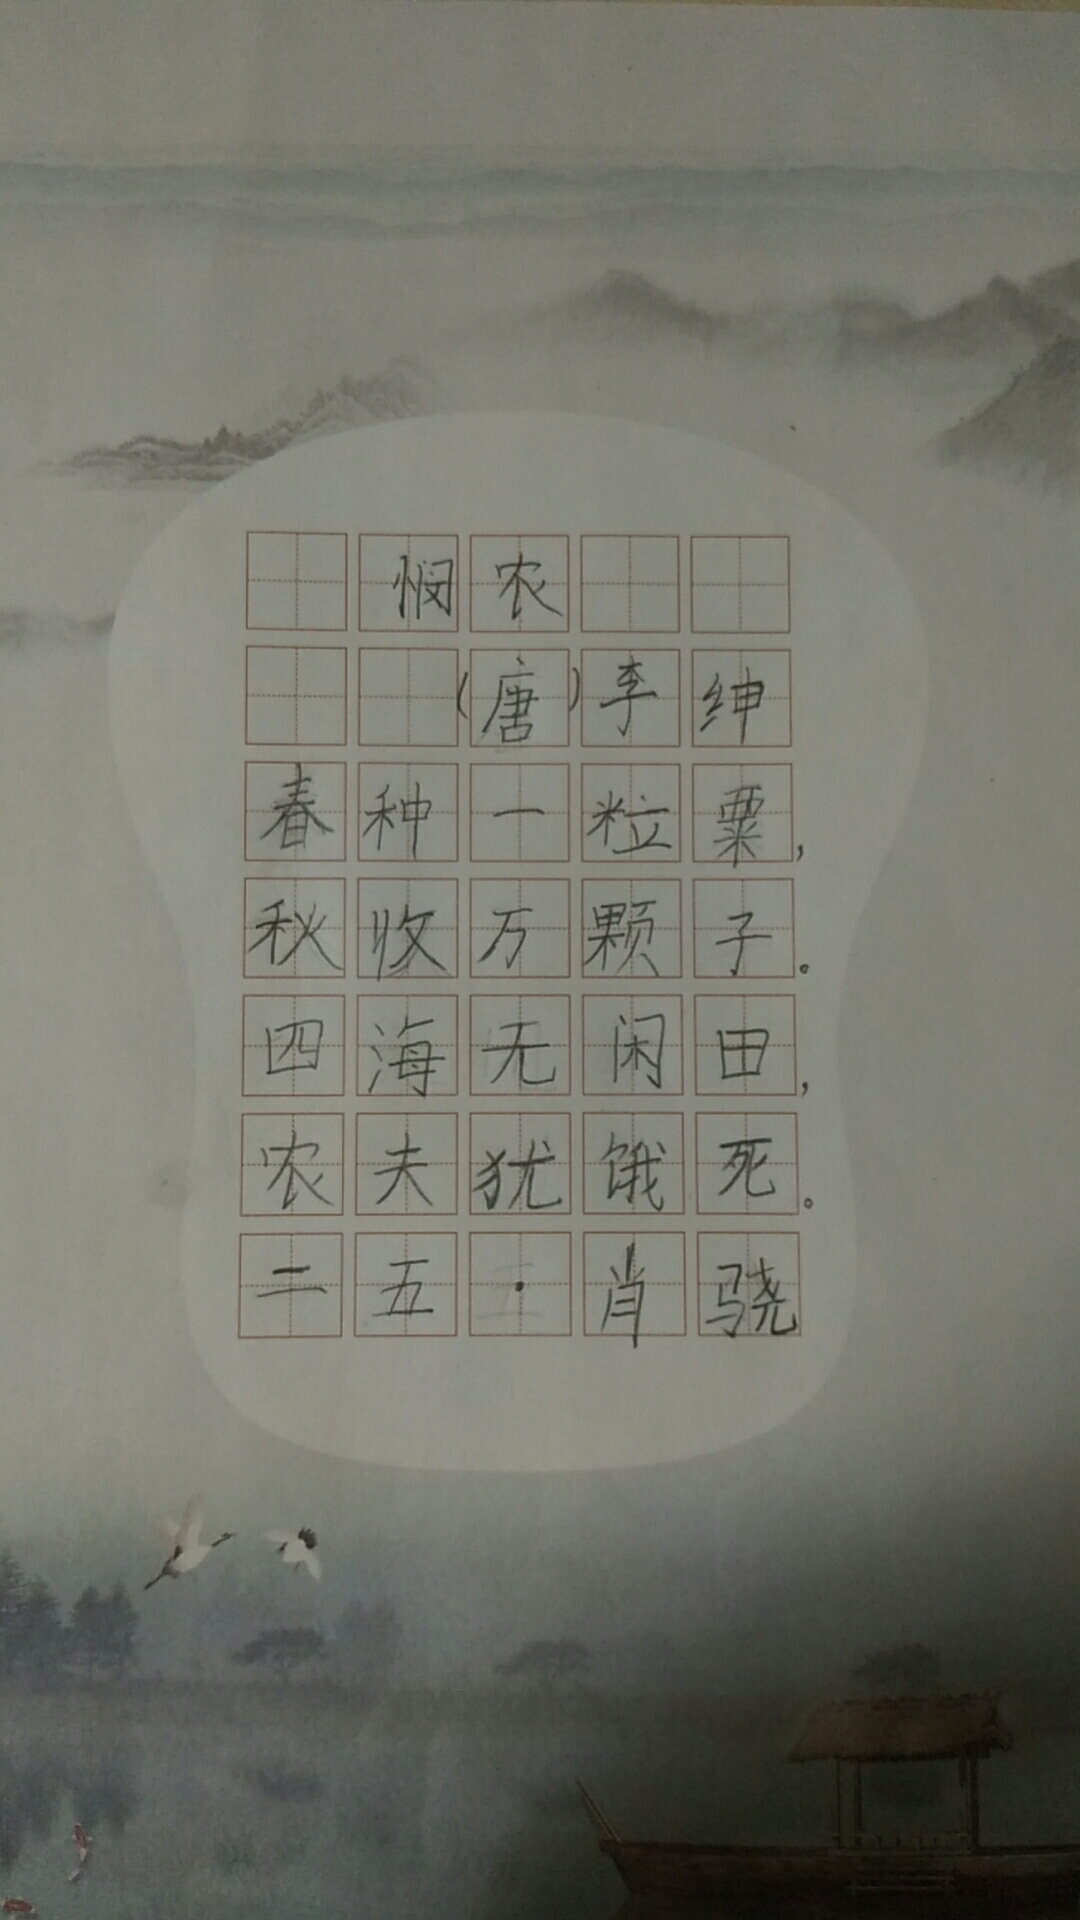 悯农
(唐)李绅
春种一粒粟,
秋收万颗子。
四海无闲田,
农夫犹饿死。
二五·肖骁